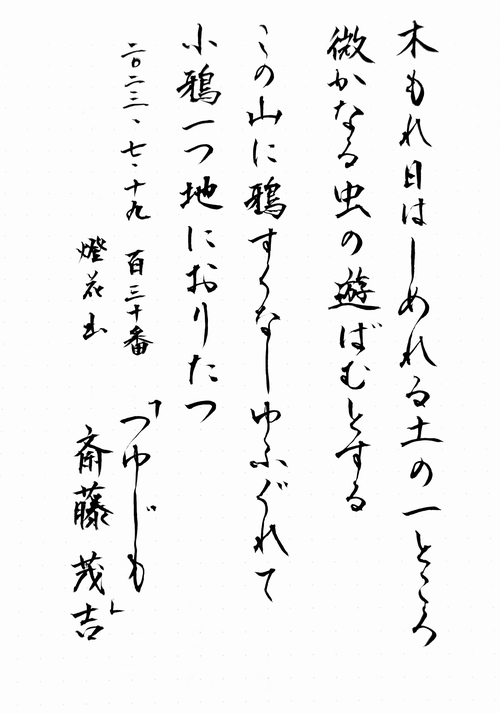 木もれ日はしめれる土の一ところ
微かなる虫の遊ばむとする
この山に鴉すくなしゆふぐれて
小鴉一つ地におりたつ
二〇二三、七・十九 百三十番
燈花出
「つゆじも」
斎藤茂吉